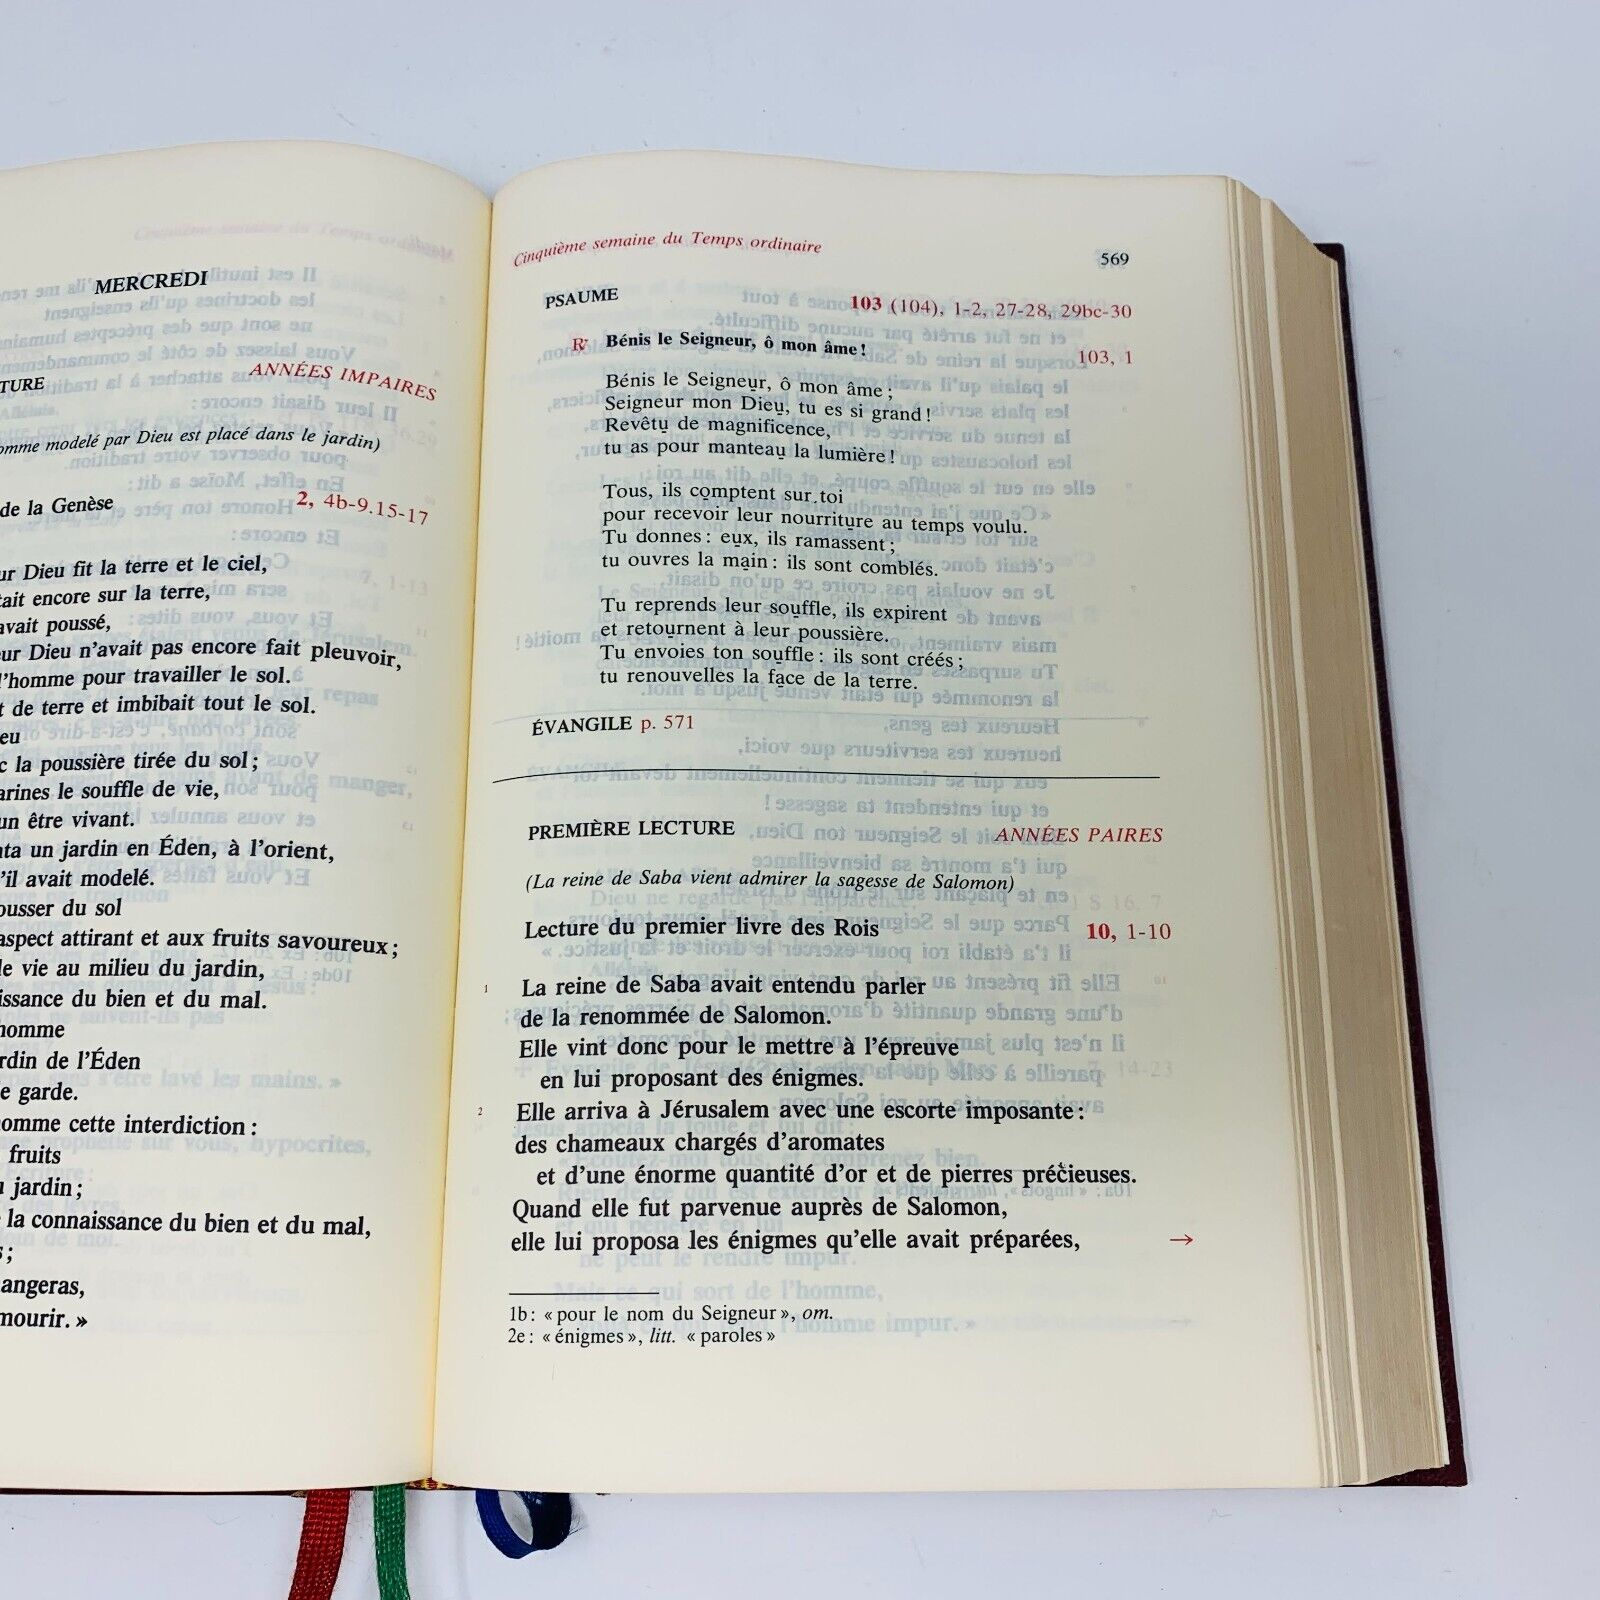 MERCREDI
TURE
ANNÉES IMPAIRES
omme modelé par Dieu est placé dans le jardin)
de la Genèse 2, 4b-9.15-17
ur Dieu fit la terre et le ciel,
tait encore sur la terre,
avait poussé,
eur Dieu n'avait pas encore fait pleuvoir,
l'homme pour travailler le sol.
t de terre et imbibait tout le sol.
eu
c la poussière tirée du sol ;
arines le souffle de vie,
un être vivant.
nta un jardin en Éden, à l'orient,
'il avait modelé.
ousser du sol
aspect attirant et aux fruits savoureux ;
de vie au milieu du jardin,
issance du bien et du mal.
homme
rdin de l'Éden
e garde.
homme cette interdiction :
fruits
u jardin ;
la connaissance du bien et du mal,
s ;
angeras,
mourir. »
Cinquième semaine du Temps ordinaire 569
PSAUME 103 (104), 1-2, 27-28, 29bc-30
℟ Bénis le Seigneur, ô mon âme ! 103, 1
Bénis le Seigneur, ô mon âme ;
Seigneur mon Dieu, tu es si grand !
Revêtu de magnificence,
tu as pour manteau la lumière !
Tous, ils comptent sur toi
pour recevoir leur nourriture au temps voulu.
Tu donnes : eux, ils ramassent ;
tu ouvres la main : ils sont comblés.
Tu reprends leur souffle, ils expirent
et retournent à leur poussière.
Tu envoies ton souffle : ils sont créés ;
tu renouvelles la face de la terre.
ÉVANGILE p. 571
PREMIÈRE LECTURE ANNÉES PAIRES
(La reine de Saba vient admirer la sagesse de Salomon)
Lecture du premier livre des Rois 10, 1-10
1 La reine de Saba avait entendu parler
de la renommée de Salomon.
Elle vint donc pour le mettre à l'épreuve
en lui proposant des énigmes.
2 Elle arriva à Jérusalem avec une escorte imposante :
des chameaux chargés d'aromates
et d'une énorme quantité d'or et de pierres précieuses.
Quand elle fut parvenue auprès de Salomon,
elle lui proposa les énigmes qu'elle avait préparées, →
1b : « pour le nom du Seigneur », om.
2e : « énigmes », litt. « paroles »